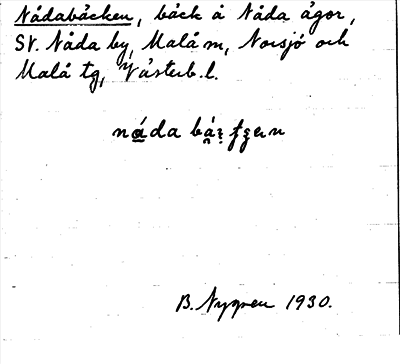 Nådabäcken, bäck å Nåda ägor,
St. Nåda by, Malå m, Norsjö och
Malå tg, Västerb. l.
B. Nygren 1930.